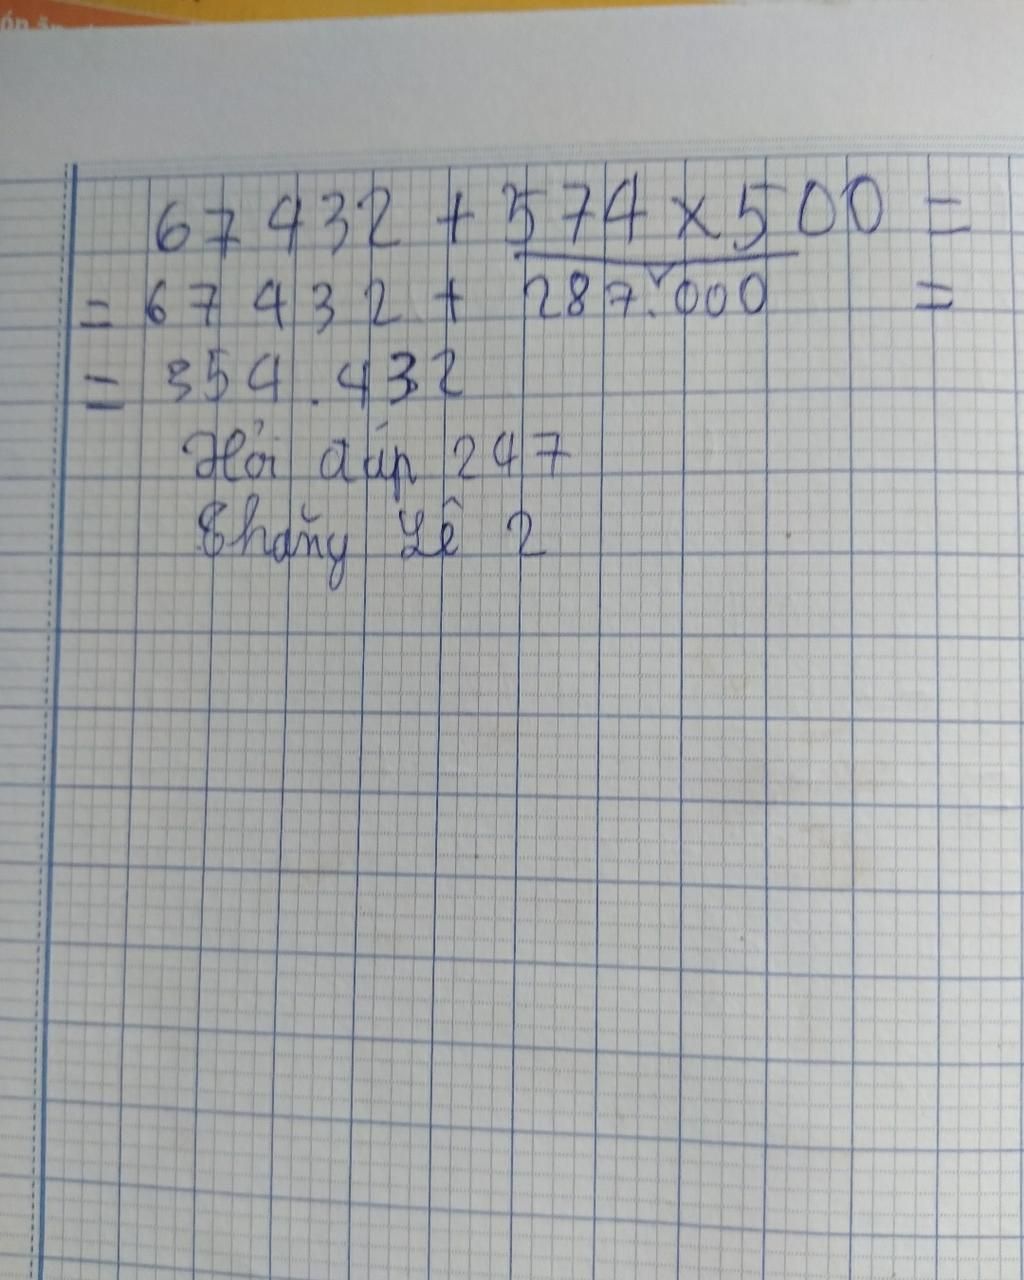 67432 + 574 x 500 =
= 67432 + 287.000 =
= 354.432
Hỏi đáp 247
Thắng Lê 2